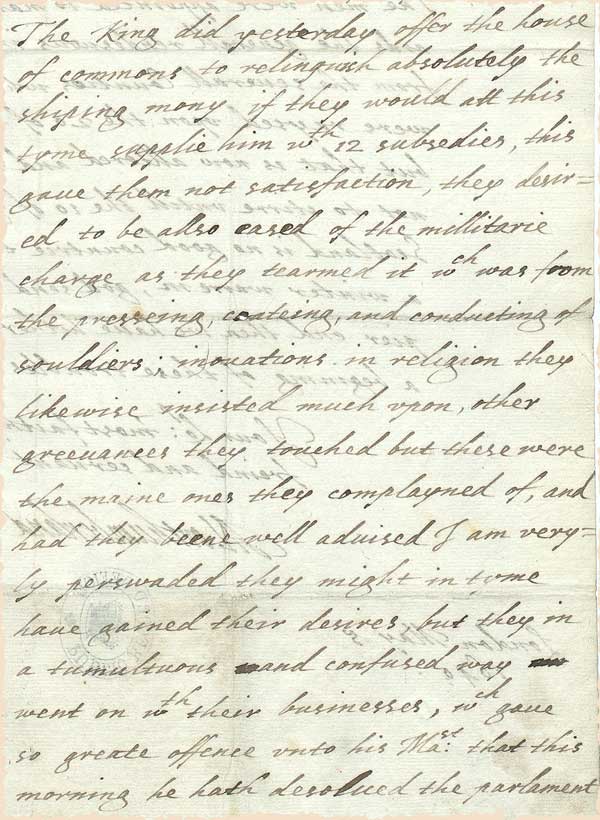 The King did yesterday offer the house
of commons to relinquish absolutely the
shiping mony if they would att this
tyme supplie him wth 12 subsedies, this
gaue them not satisfaction, they desir=
ed to be allso eased of the millitarie
charge as they tearmed it wch was from
the presseing, coateing, and conducting of
souldiers. inouations in religion they
likewise insisted much vpon, other
greeuances they touched but these were
the maine ones they complayned of, and
had they beene well advised I am very=
ly perswaded they might in tyme
haue gained their desires, but they in
a tumultuous and confused way
went on wth their businesses, wch gaue
so greate offence vnto his Ma:st that this
morning he hath desolued the parlament